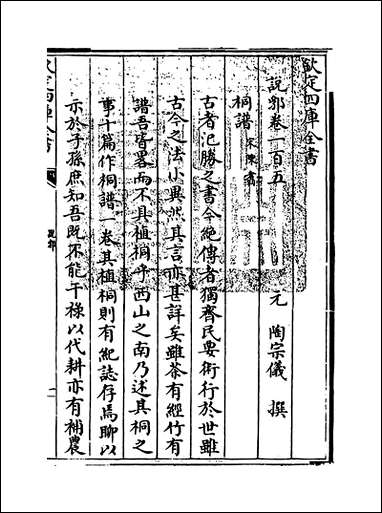 欽定四庫全書
說郛卷一百五
元 陶宗儀 撰
桐譜 宋陳翥
古者氾勝之書今絶傳者獨齊民要術行於世雖
古今之法小異然其言亦甚詳矣雖茶有經竹有
譜吾皆畧而不具植桐乎西山之南乃述其桐之
事十篇作桐譜一卷其植桐則有紀誌存焉聊以
示於子孫庶知吾既不能干祿以代耕亦有補農
欽定四庫全書
說郛
一